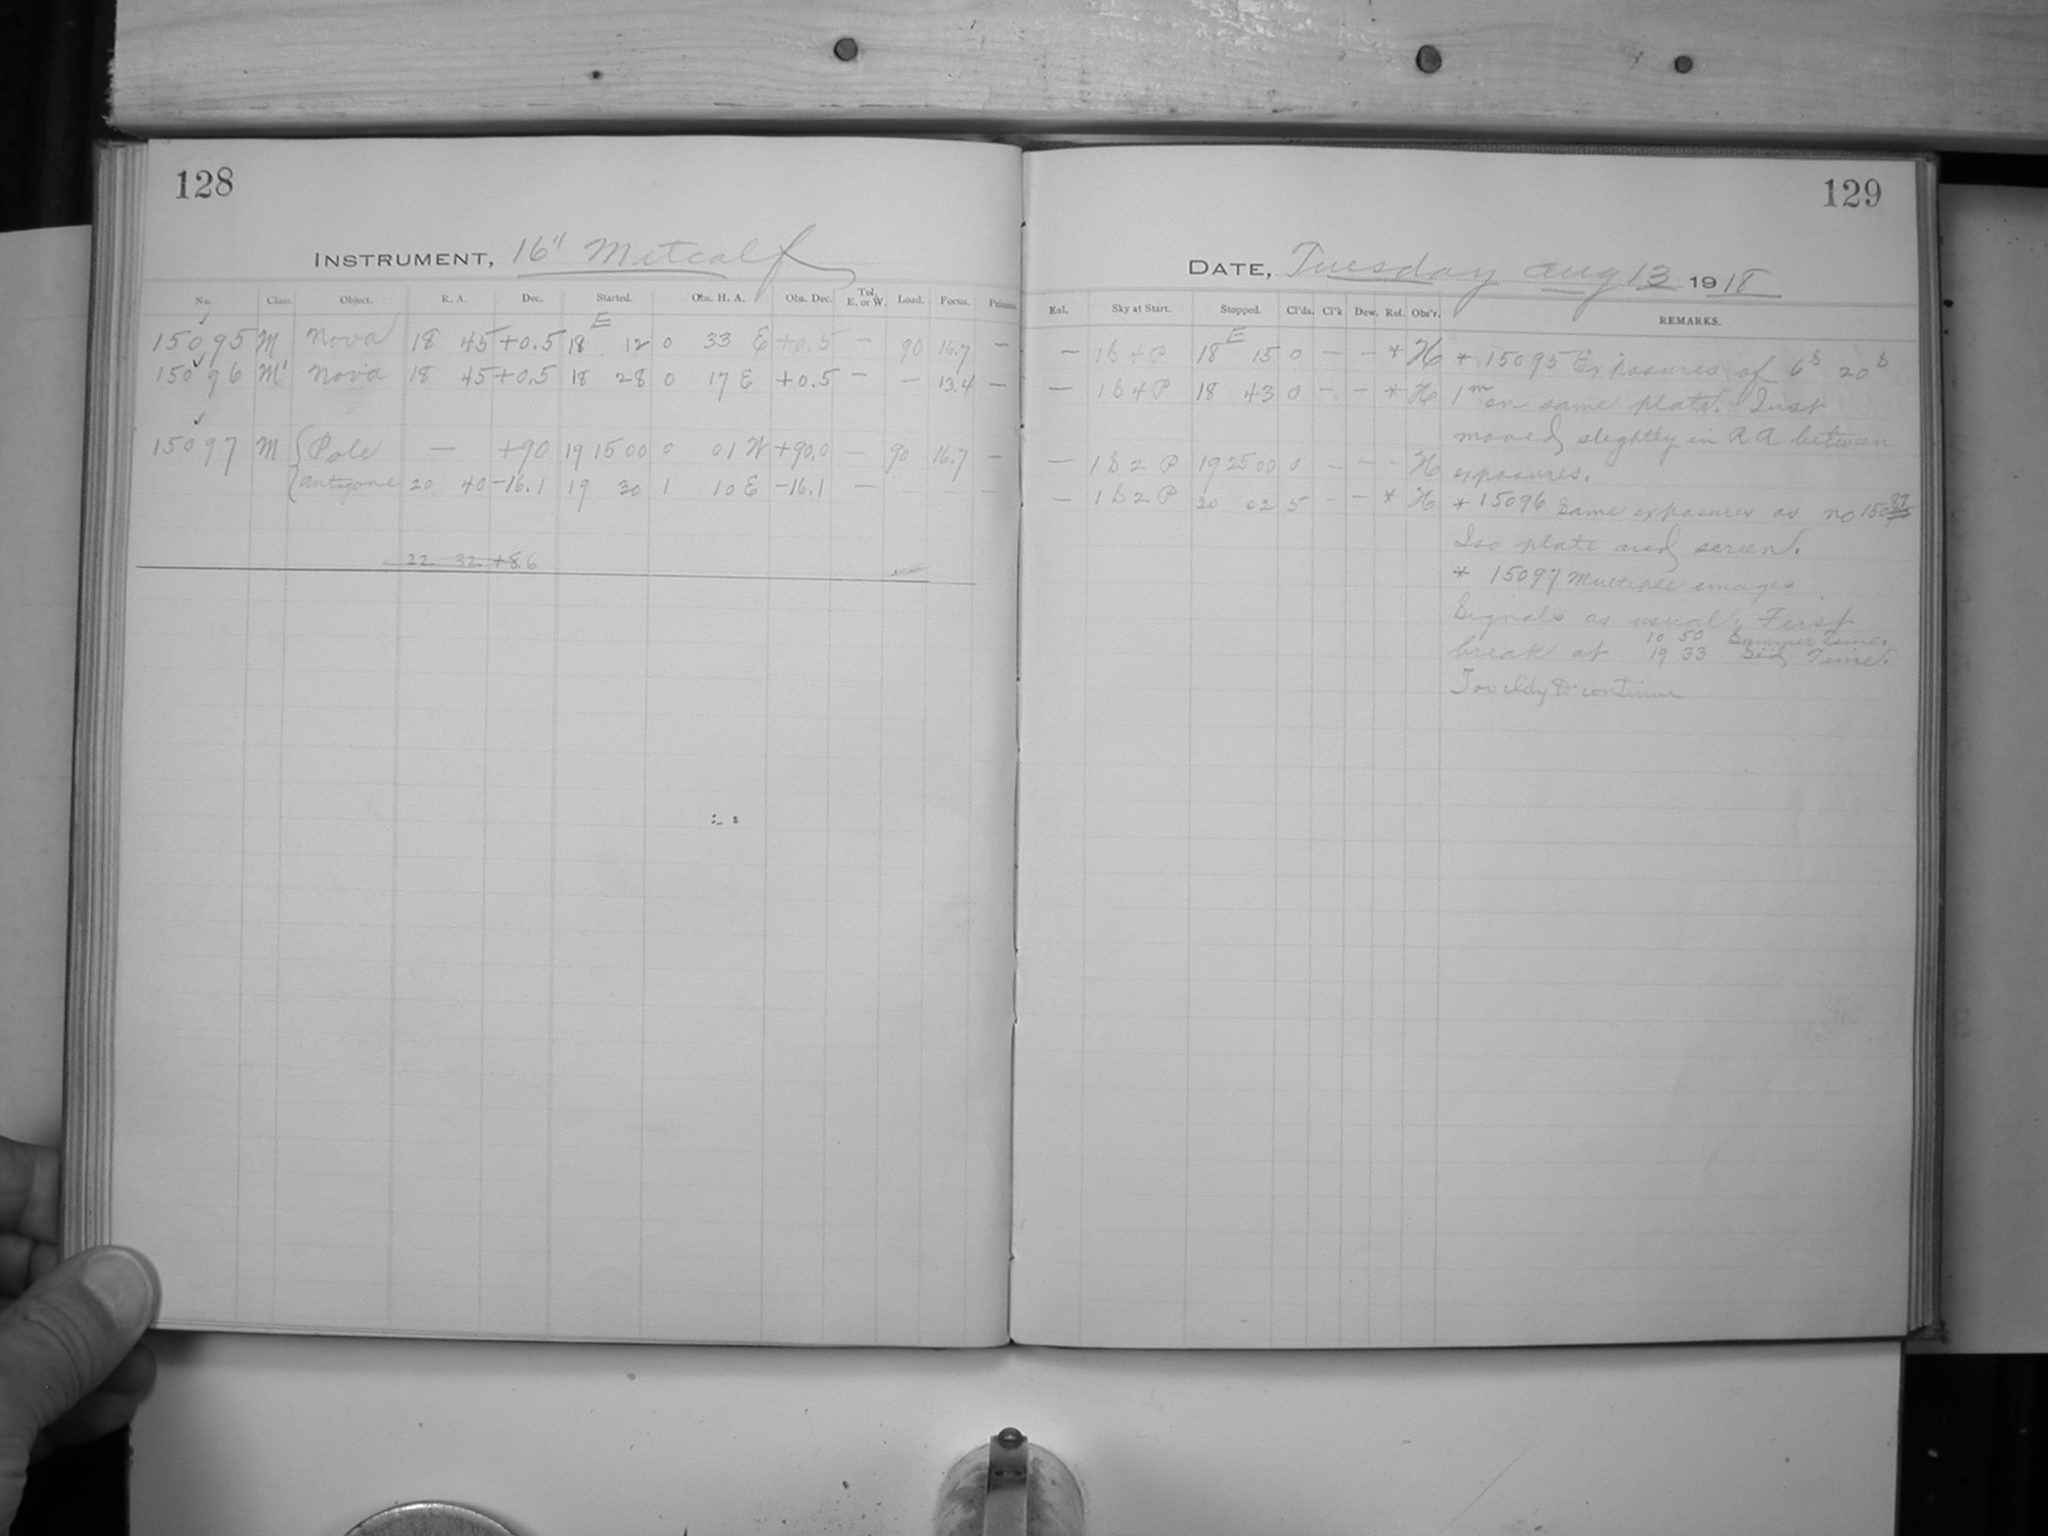 128
INSTRUMENT, 16" Metcalf
No. Class. Object. R. A. Dec. Started. Obs. H. A. Obs. Dec. Tel. E. or W. Load. Focus.
15095 M Nova 18 45 +0.5 18 E 12 0 33 E +0.5 — 90 16.7 —
15096 M' Nova 18 45 +0.5 18 28 0 17 E +0.5 — — 13.4 —
15097 M Pole — +90 19 15 00 0 01 W +90.0 — 90 16.7 —
Antigone 20 40 -16.1 19 30 1 10 E -16.1 —
22 32 +8.6
129
DATE, Tuesday Aug 13 1918
Sky at Start. Stopped. Cl'ds. Cl'k Dew. Ref. Obs'r. REMARKS.
— 1 S 4 P 18 E 15 0 — — * H * 15095 Exposures of 6s 20s
— 1 S 4 P 18 43 0 — — * H 1m on same plate. Just
moved slightly in R A between
— 1 S 2 P 19 25 00 0 — — - H exposures.
— 1 S 2 P 20 02 5 — — * H * 15096 Same exposures as no 15087
Iso plate and screen.
* 15097 Multiple images
Signals as usual. First
break at 10 50 Summer Time.
19 33 Sid Time.
Too cldy to continue